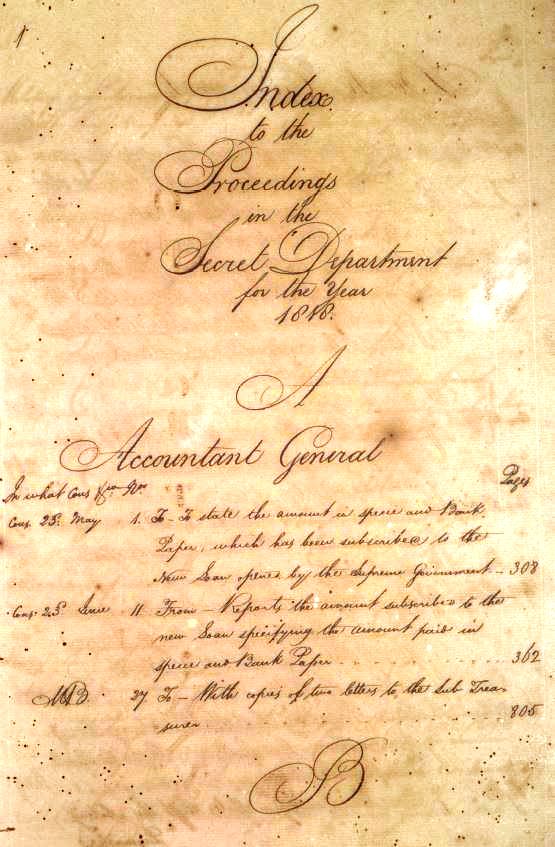 1
Index
to the
Proceedings
in the
Secret Department
for the Year
1818.
A
Accountant General
In what Cons
Pages
Cons. 23d. May 1. To – To state the amount in specie and Bank
Paper, which has been subscribed to the
New Loan opened by the Supreme Government – 308
Cons. 23d June 11. From – Reports the amount subscribed to the
new Loan specifying the amount paid in
specie and Bank Paper 362
27 To – With copies of two letters to the Sub Trea-
surer 805
B